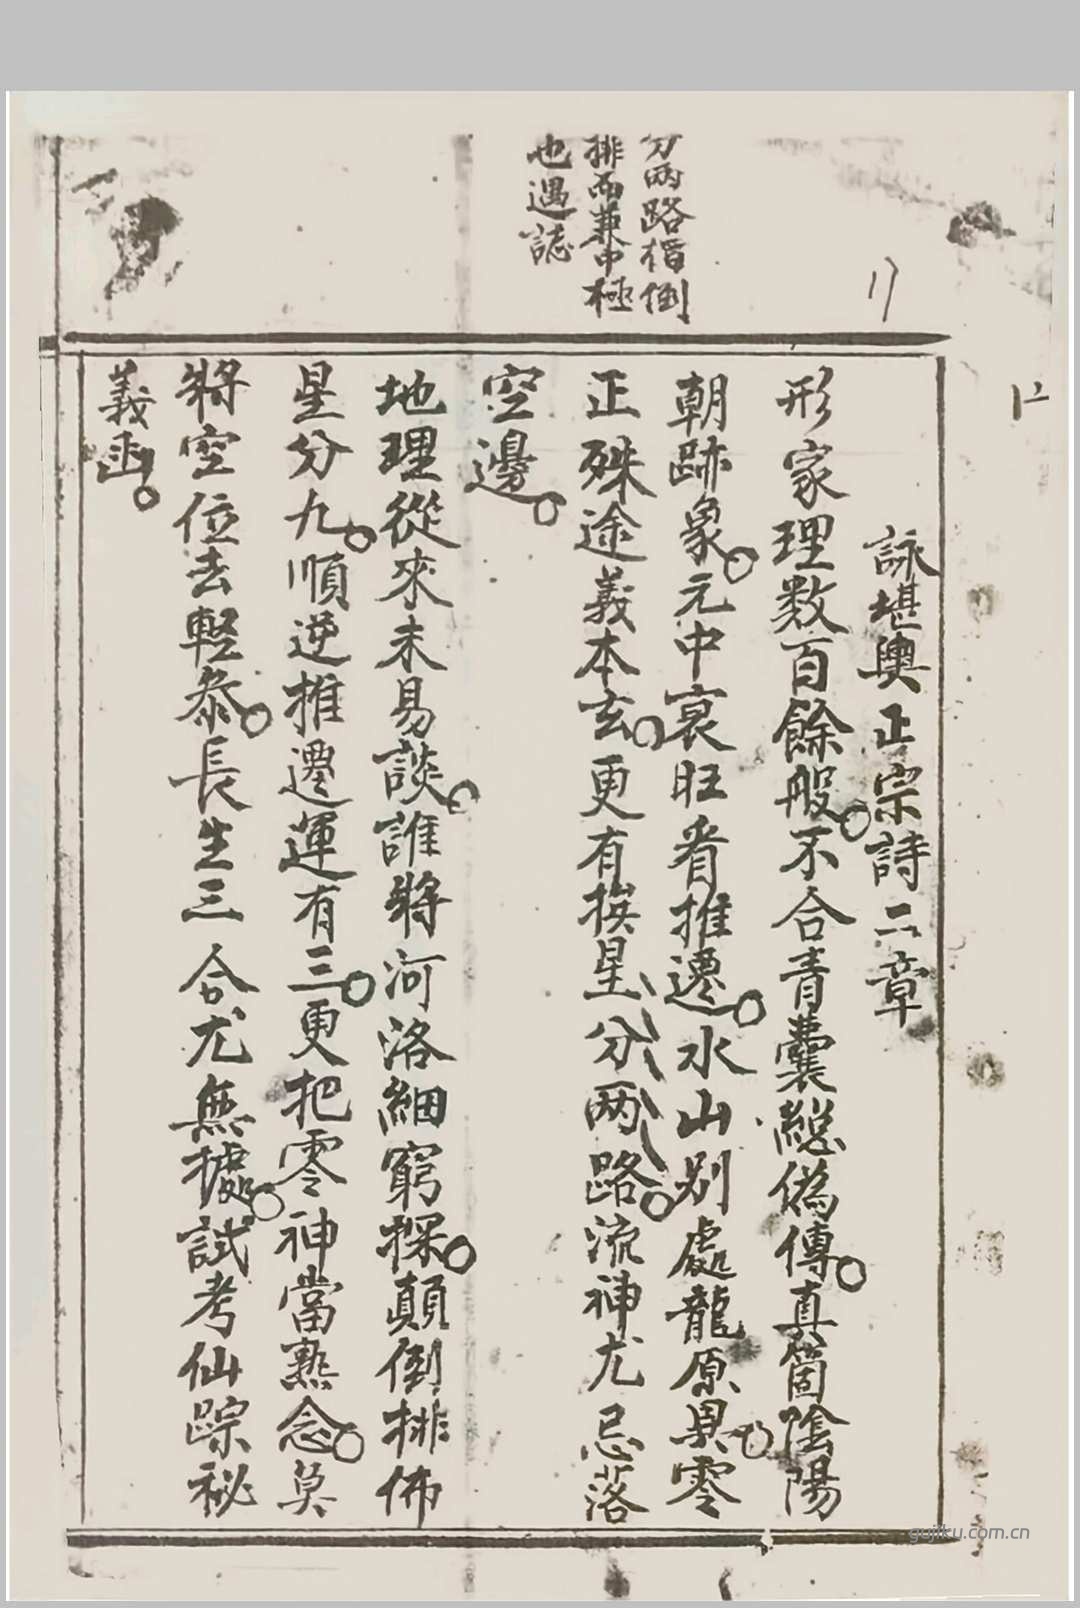 分兩路楷倒
排而兼中極
也遇誌
詠堪輿正宗詩二章
形家理数百餘般不合青囊總偽傳真箇陰陽
朝跡象元中衰旺看推遷水山别處龍原異零
正殊途義本玄更有挨星分两路流神尤忌落
空邊
地理從來未易談誰將河洛細窮探顛倒排佈
星分九順逆推遷運有三更把零神當熟念莫
將空位去輕叅長生三合尤無據試考仙踪祕
義函
gujiku.com.cn